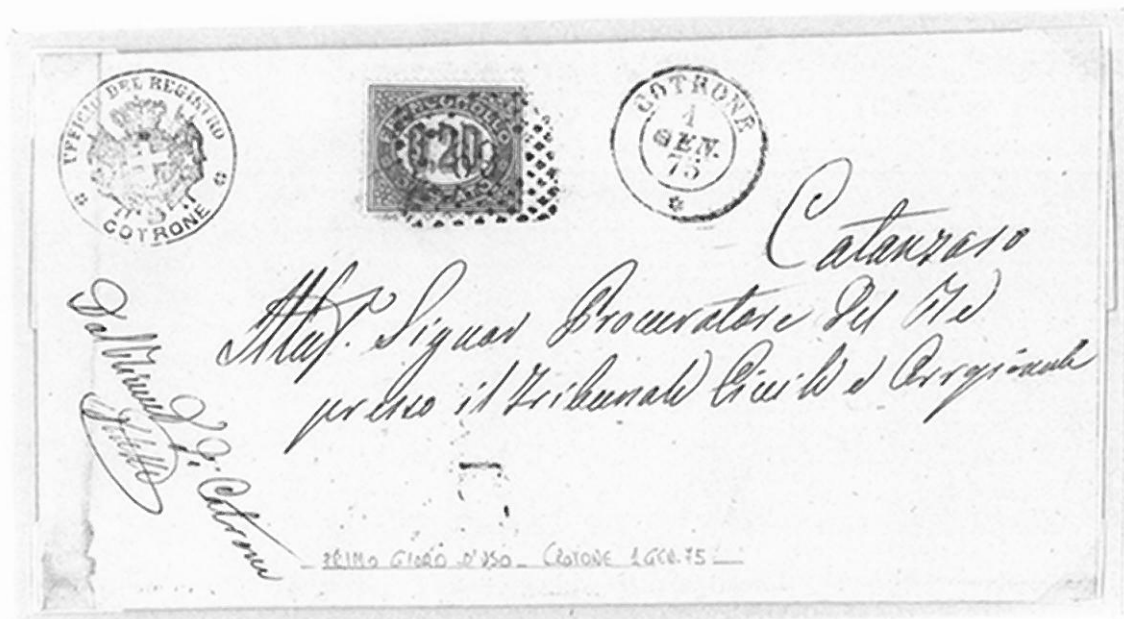 UFFICIO DEL REGISTRO
COTRONE
FRANCOBOLLO
0.20
COTRONE
1
GEN.
75
Catanzaro
Signor Procuratore del Re
presso il Tribunale Civile e Correzionale
Dal
Cotrone
PRIMO GIORNO D'USO - CROTONE 1 GEN. 75